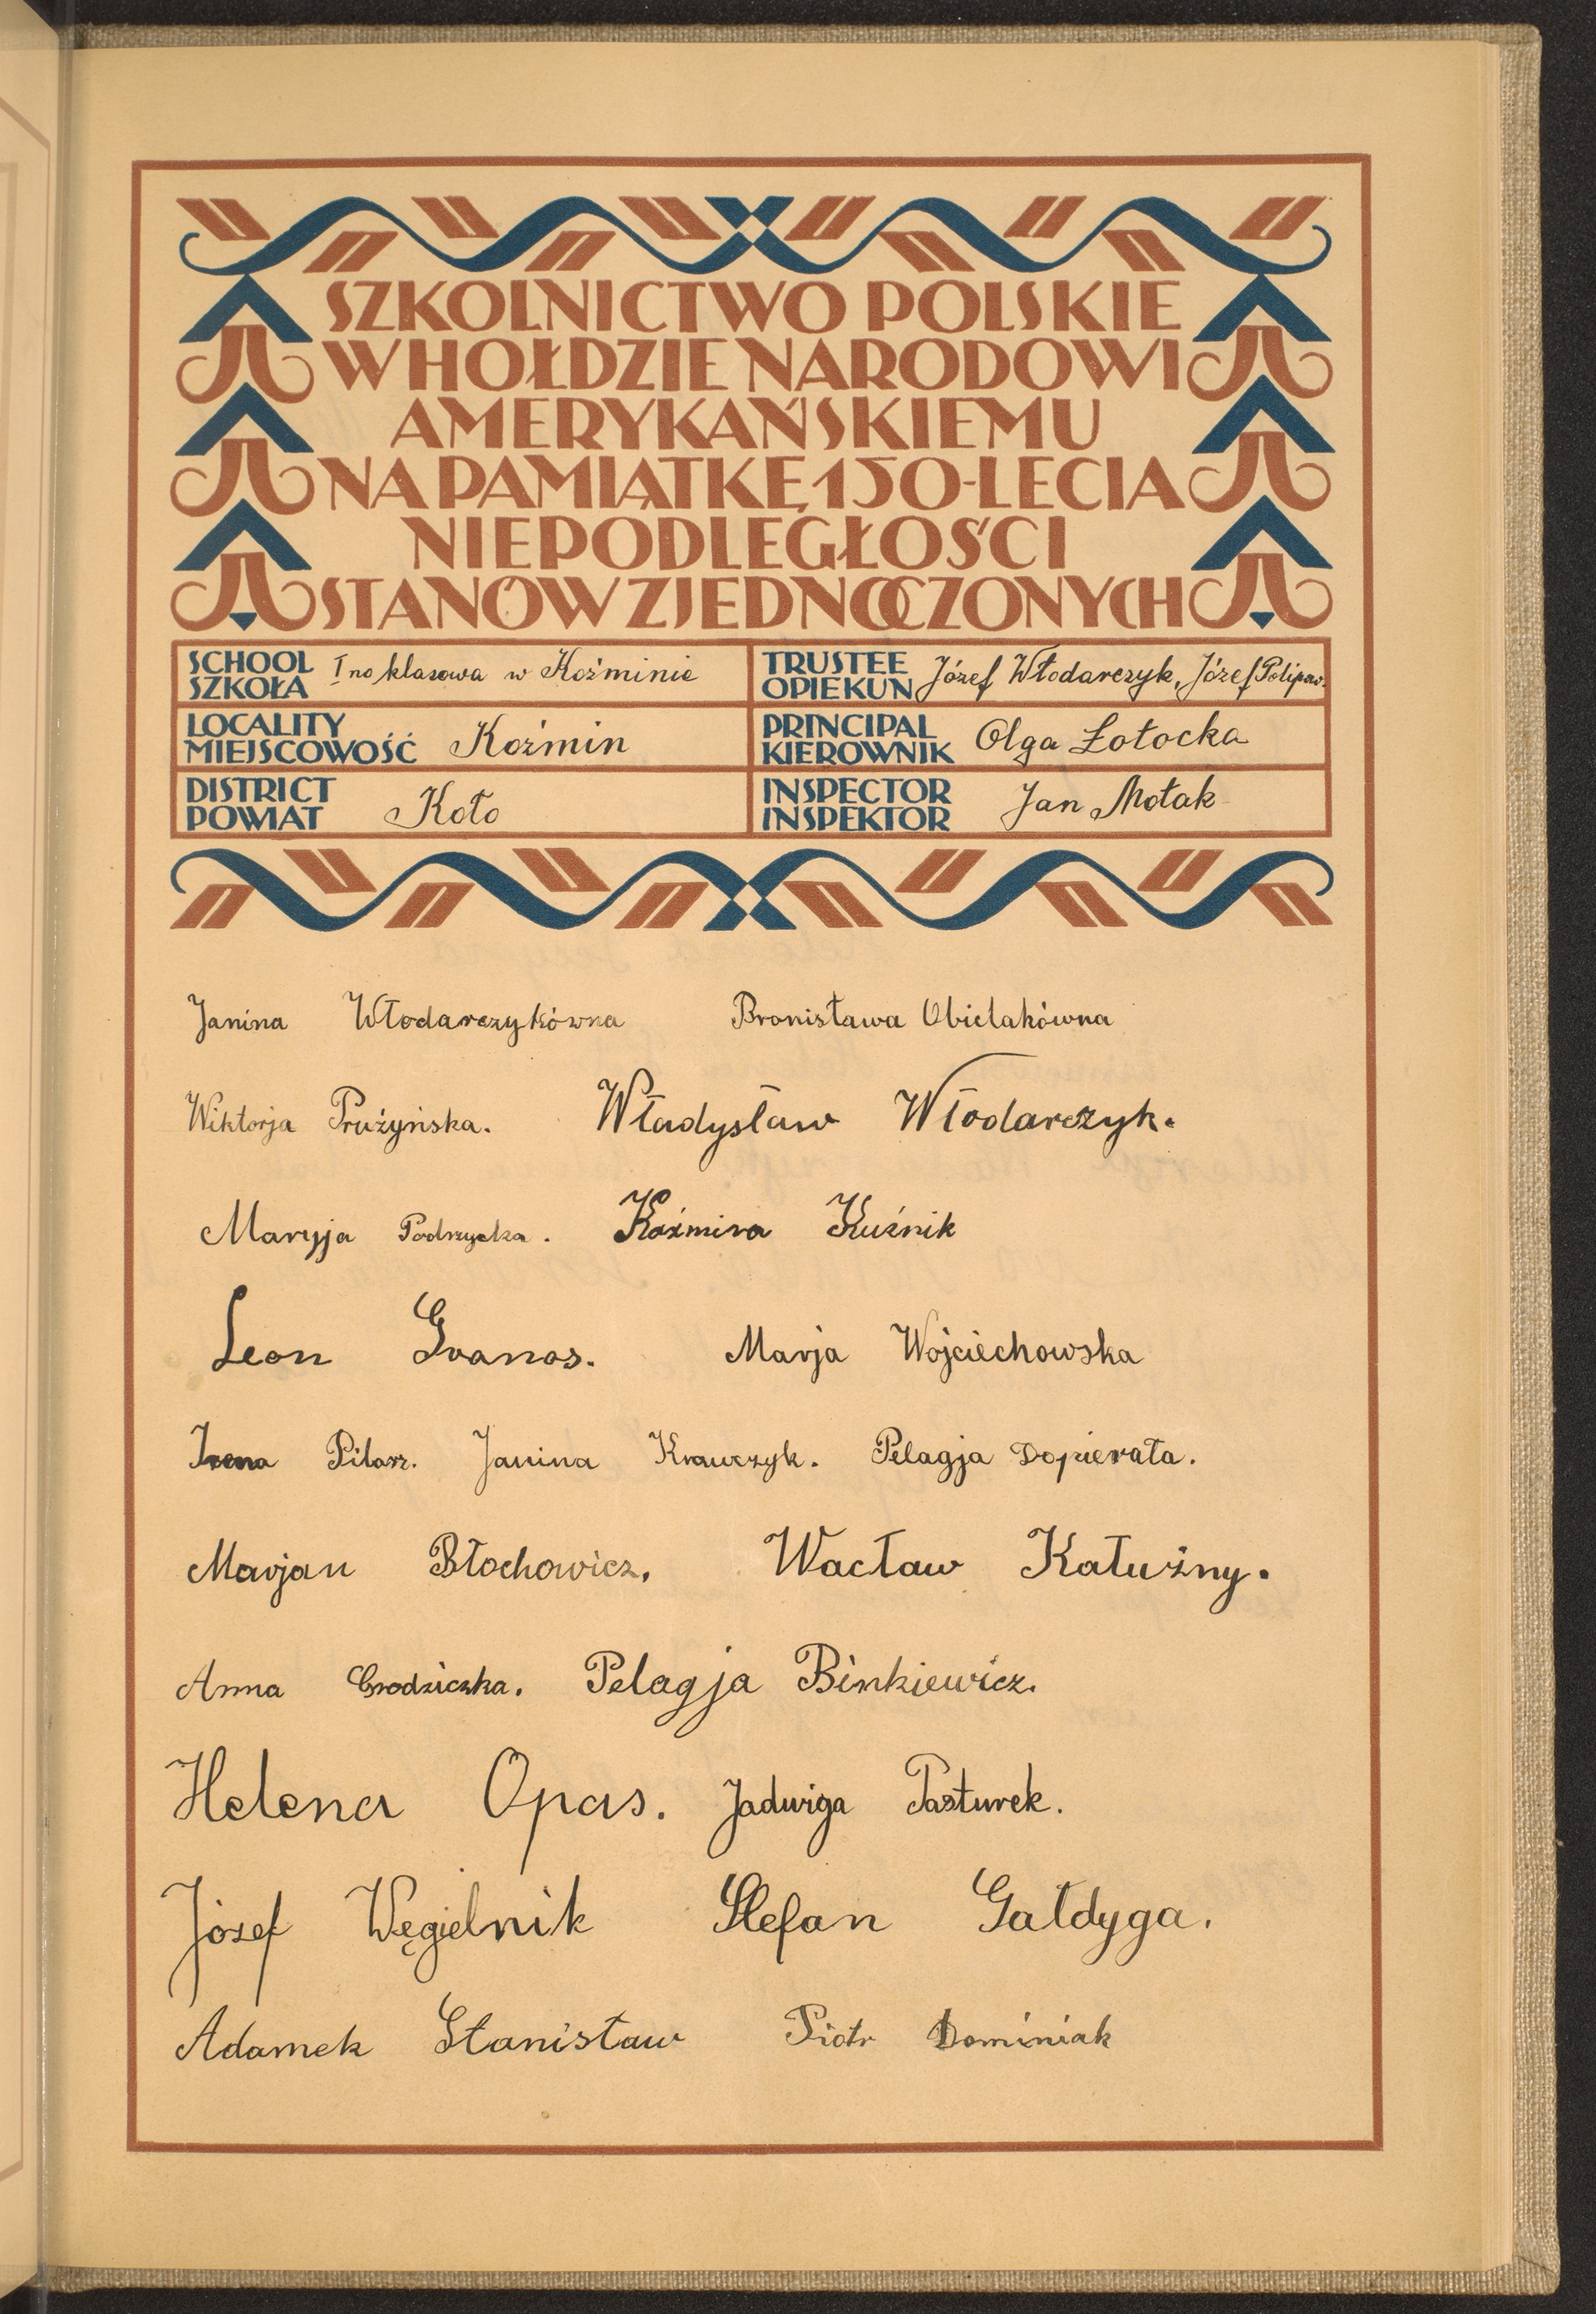 SZKOLNICTWO POLSKIE
W HOŁDZIE NARODOWI
AMERYKAŃSKIEMU
NA PAMIĄTKĘ 150-LECIA
NIEPODLEGŁOŚCI
STANÓW ZJEDNOCZONYCH
SCHOOL SZKOŁA I no klasowa w Koźminie
TRUSTEE OPIEKUN Józef Włodarczyk, Józef
LOCALITY MIEJSCOWOŚĆ Koźmin
PRINCIPAL KIEROWNIK Olga Łotocka
DISTRICT POWIAT Koło
INSPECTOR INSPEKTOR Jan Mołak
Janina Włodarczykówna Bronisława Ubielakówna
Wiktorja Prużyńska. Władysław Włodarczyk.
Maryja Podrzycka. Kaźmira Kuźnik
Leon Granos. Marja Wojciechowska
Irena Pilarz. Janina Krawczyk. Pelagja Dopierała.
Marjan Błochowicz. Wacław Kałużny.
Anna Grodziczka. Pelagja Binkiewicz.
Helena Opas. Jadwiga Pasturek.
Józef Węgielnik Stefan Gałdyga.
Adamek Stanisław Piotr Dominiak